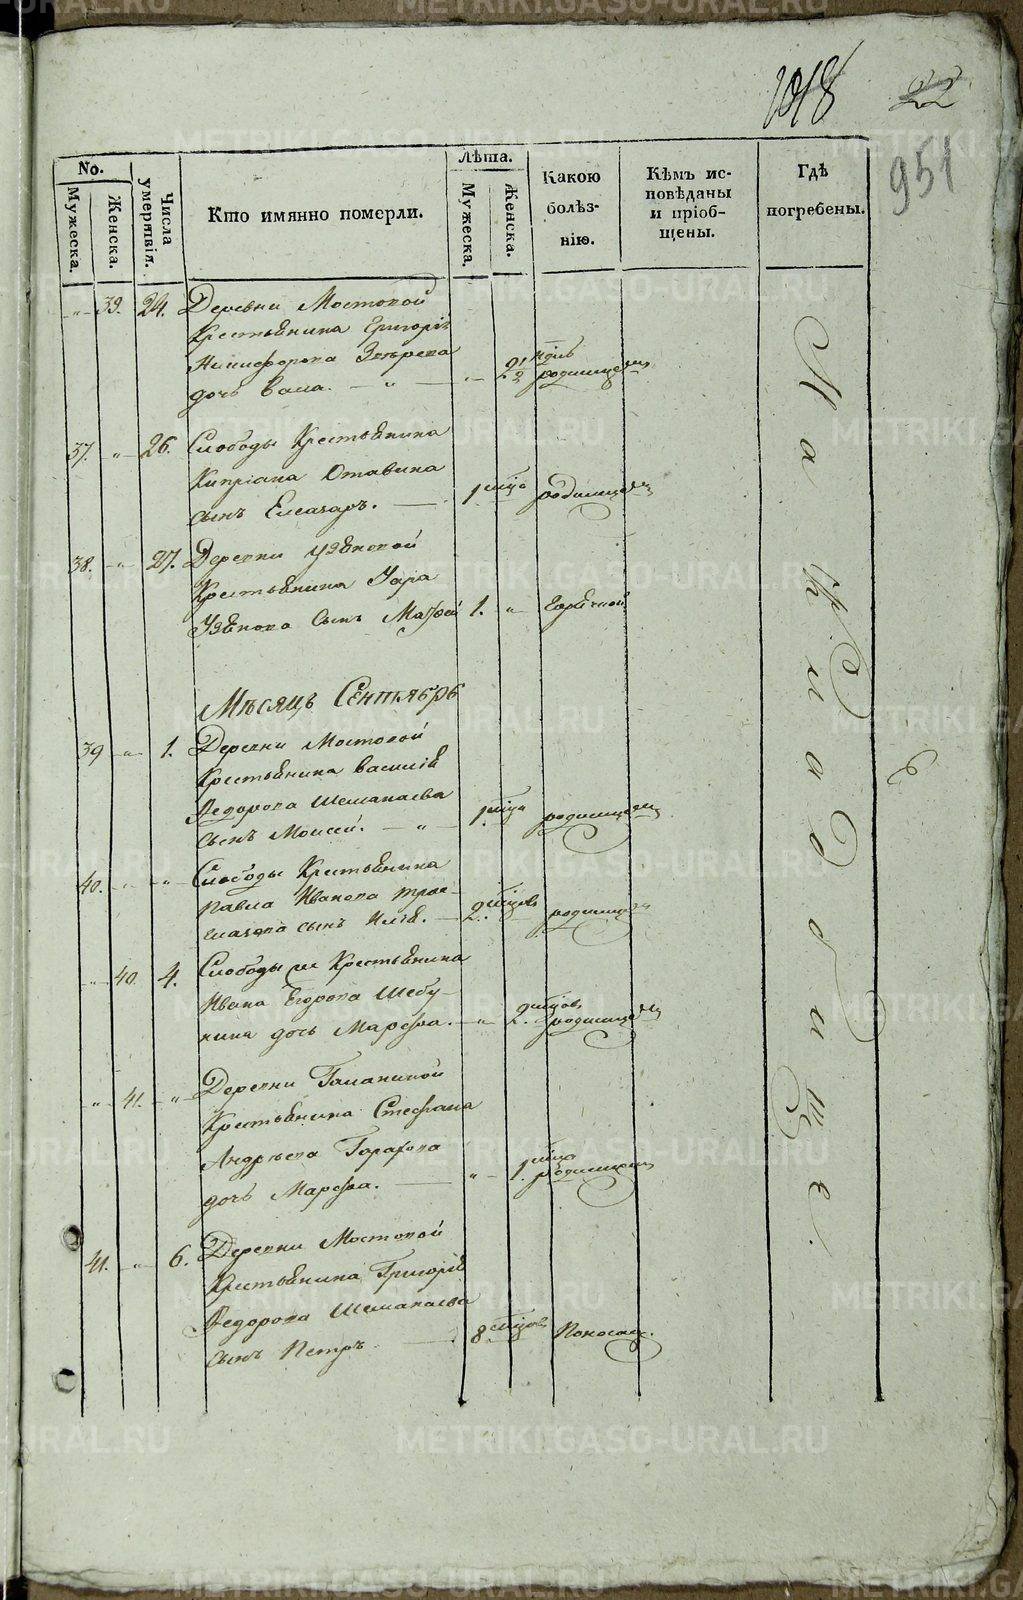 1018
22
951
No.
Мужеска.
Женска.
Числа умертвія.
Кто имянно померли.
Лѣта.
Мужеска.
Женска.
Какою
болѣз-
нію.
Кѣмъ ис-
повѣданы
и пріоб-
щены.
Гдѣ
погребены.
39. 24. Деревни Мостовой
Крестьянина Григорія
Никифорова
дочь 2½ нди родимцемъ
37. 26. Слободы Крестьянина
Кипріана Отавина
сынъ Елеазаръ. 1 мцъ родимцемъ
38. 27. Деревни Узяновой
Крестьянина Уара
Узянова Сынъ Матѳей 1. Горячкой
Мѣсяцъ Сентябрь
39 1. Деревни Мостовой
Крестьянина Василія
Ѳедорова Шемапаева
сынъ Моисей. 1 мца родимцемъ
40. Слободы Крестьянина
Павла Иванова
сынъ Илія. 2 мцовъ родимцемъ
40. 4. Слободы Крестьянина
Ивана Егорова Шебу-
нина дочь Марѳа. 2. мцовъ родимцемъ
41. Деревни Галаниной
Крестьянина Стефана
Андреева
дочь Марѳа. 1. мца родимцемъ
41. 6. Деревни Мостовой
Крестьянина Григорія
Ѳедорова Шемапаева
сынъ Петръ. 8 мцовъ Поносомъ.
На кладбищѣ.
METRIKI.GASO-URAL.RU